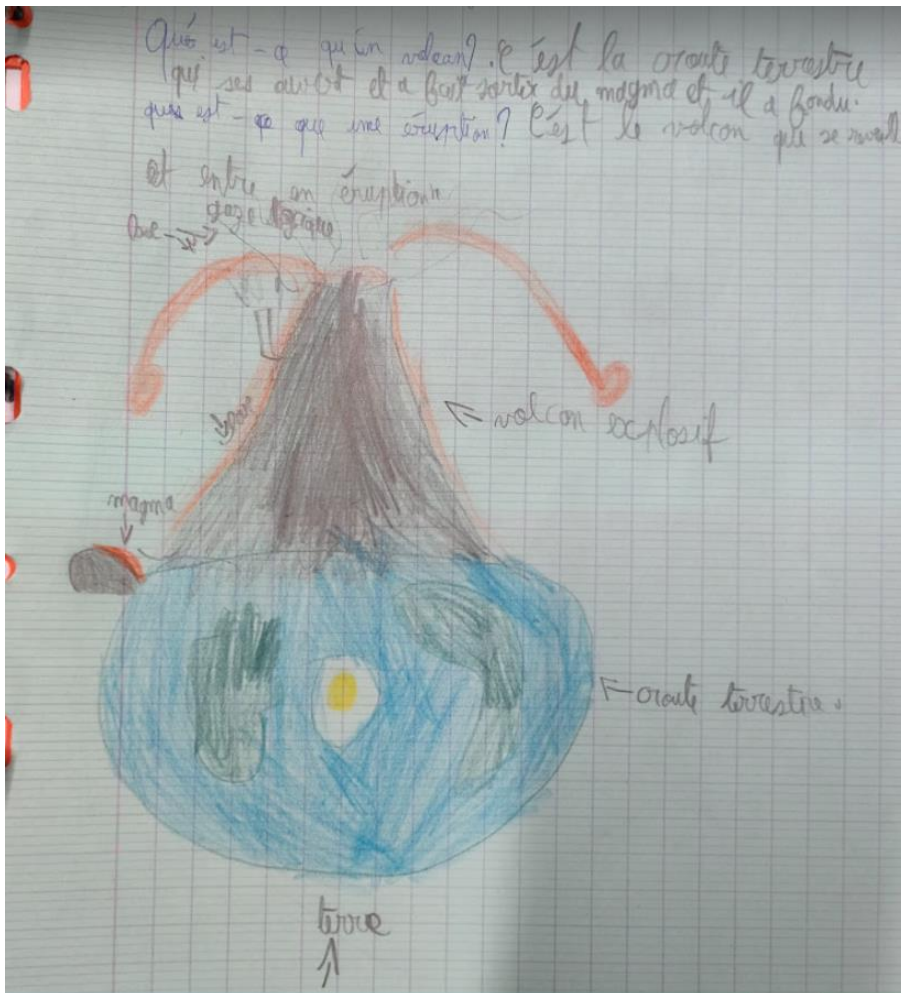 Qués est - ce qu'un volcan? C'est la croute terrestre
qui ses ouvert et a fait sortir du magma et il a fondu.
ques est - ce que une éruption? C'est le volcon qui se reveill
et entre en éruption
gaze
volcon explosif
magma
croute terrestre.
terre